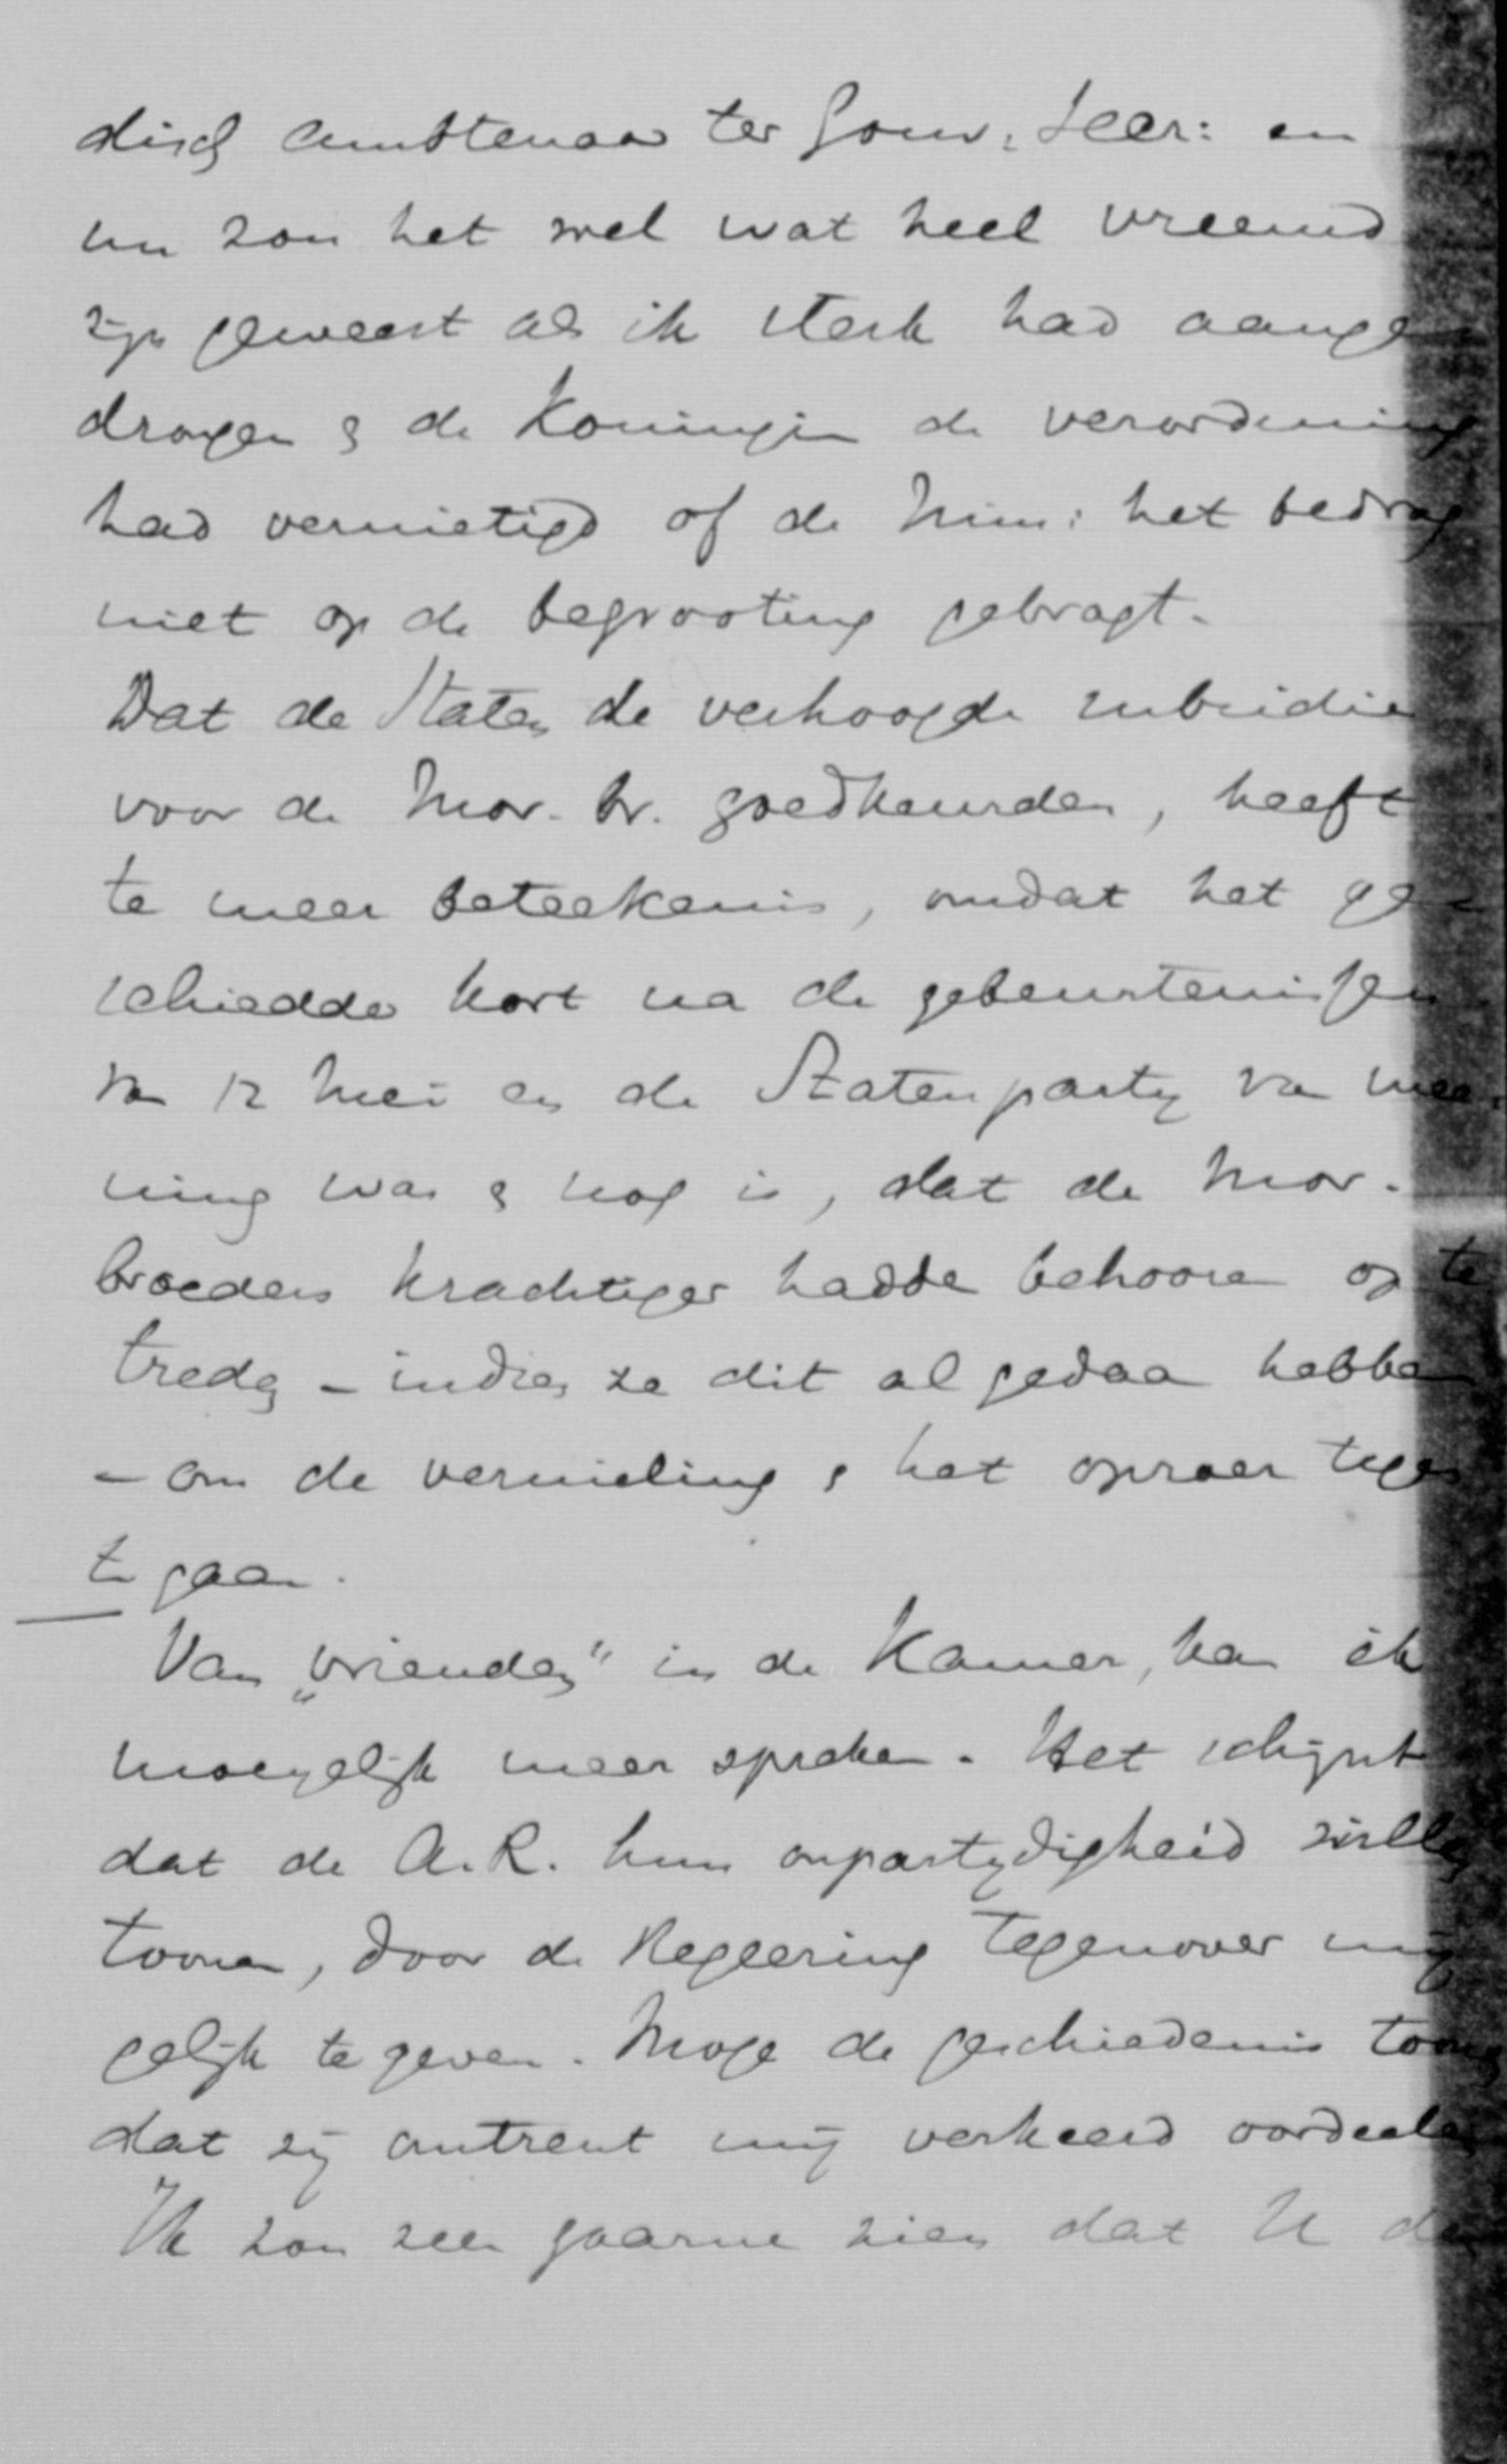 disch ambtenaar ter Gouv: Secr: en
nu zou het wel wat heel vreemd
zijn geweest als ik sterk had aange
drongen & de Koningin de verordening
had vernietigd of de Min: het bedrag
niet op de begrooting gebragt.
Dat de Staten de verhoogde subsidie
voor de Mor. br. goedkeurden, heeft
te meer beteekenis, omdat het ge
schiedde kort na de gebeurtenissen
van 12 Mei en de Statenparty van mee
ning was & nog is, dat de Mor.
broeders krachtiger hadde behooren op te
treden – indien ze dit al gedaan hebben
– om de vernieling & het oproer tegen
te gaan.
Van „vrienden" in de Kamer, kan ik
moeyelijk meer spreken. Het schijnt
dat de A.R. hun onpartydigheid willen
toonen, door de Regeering tegenover mij
gelijk te geven. Moge de geschiedenis toonen
dat zij omtrent mij verkeerd oordeelen
Ik zou zeer gaarne zien dat U